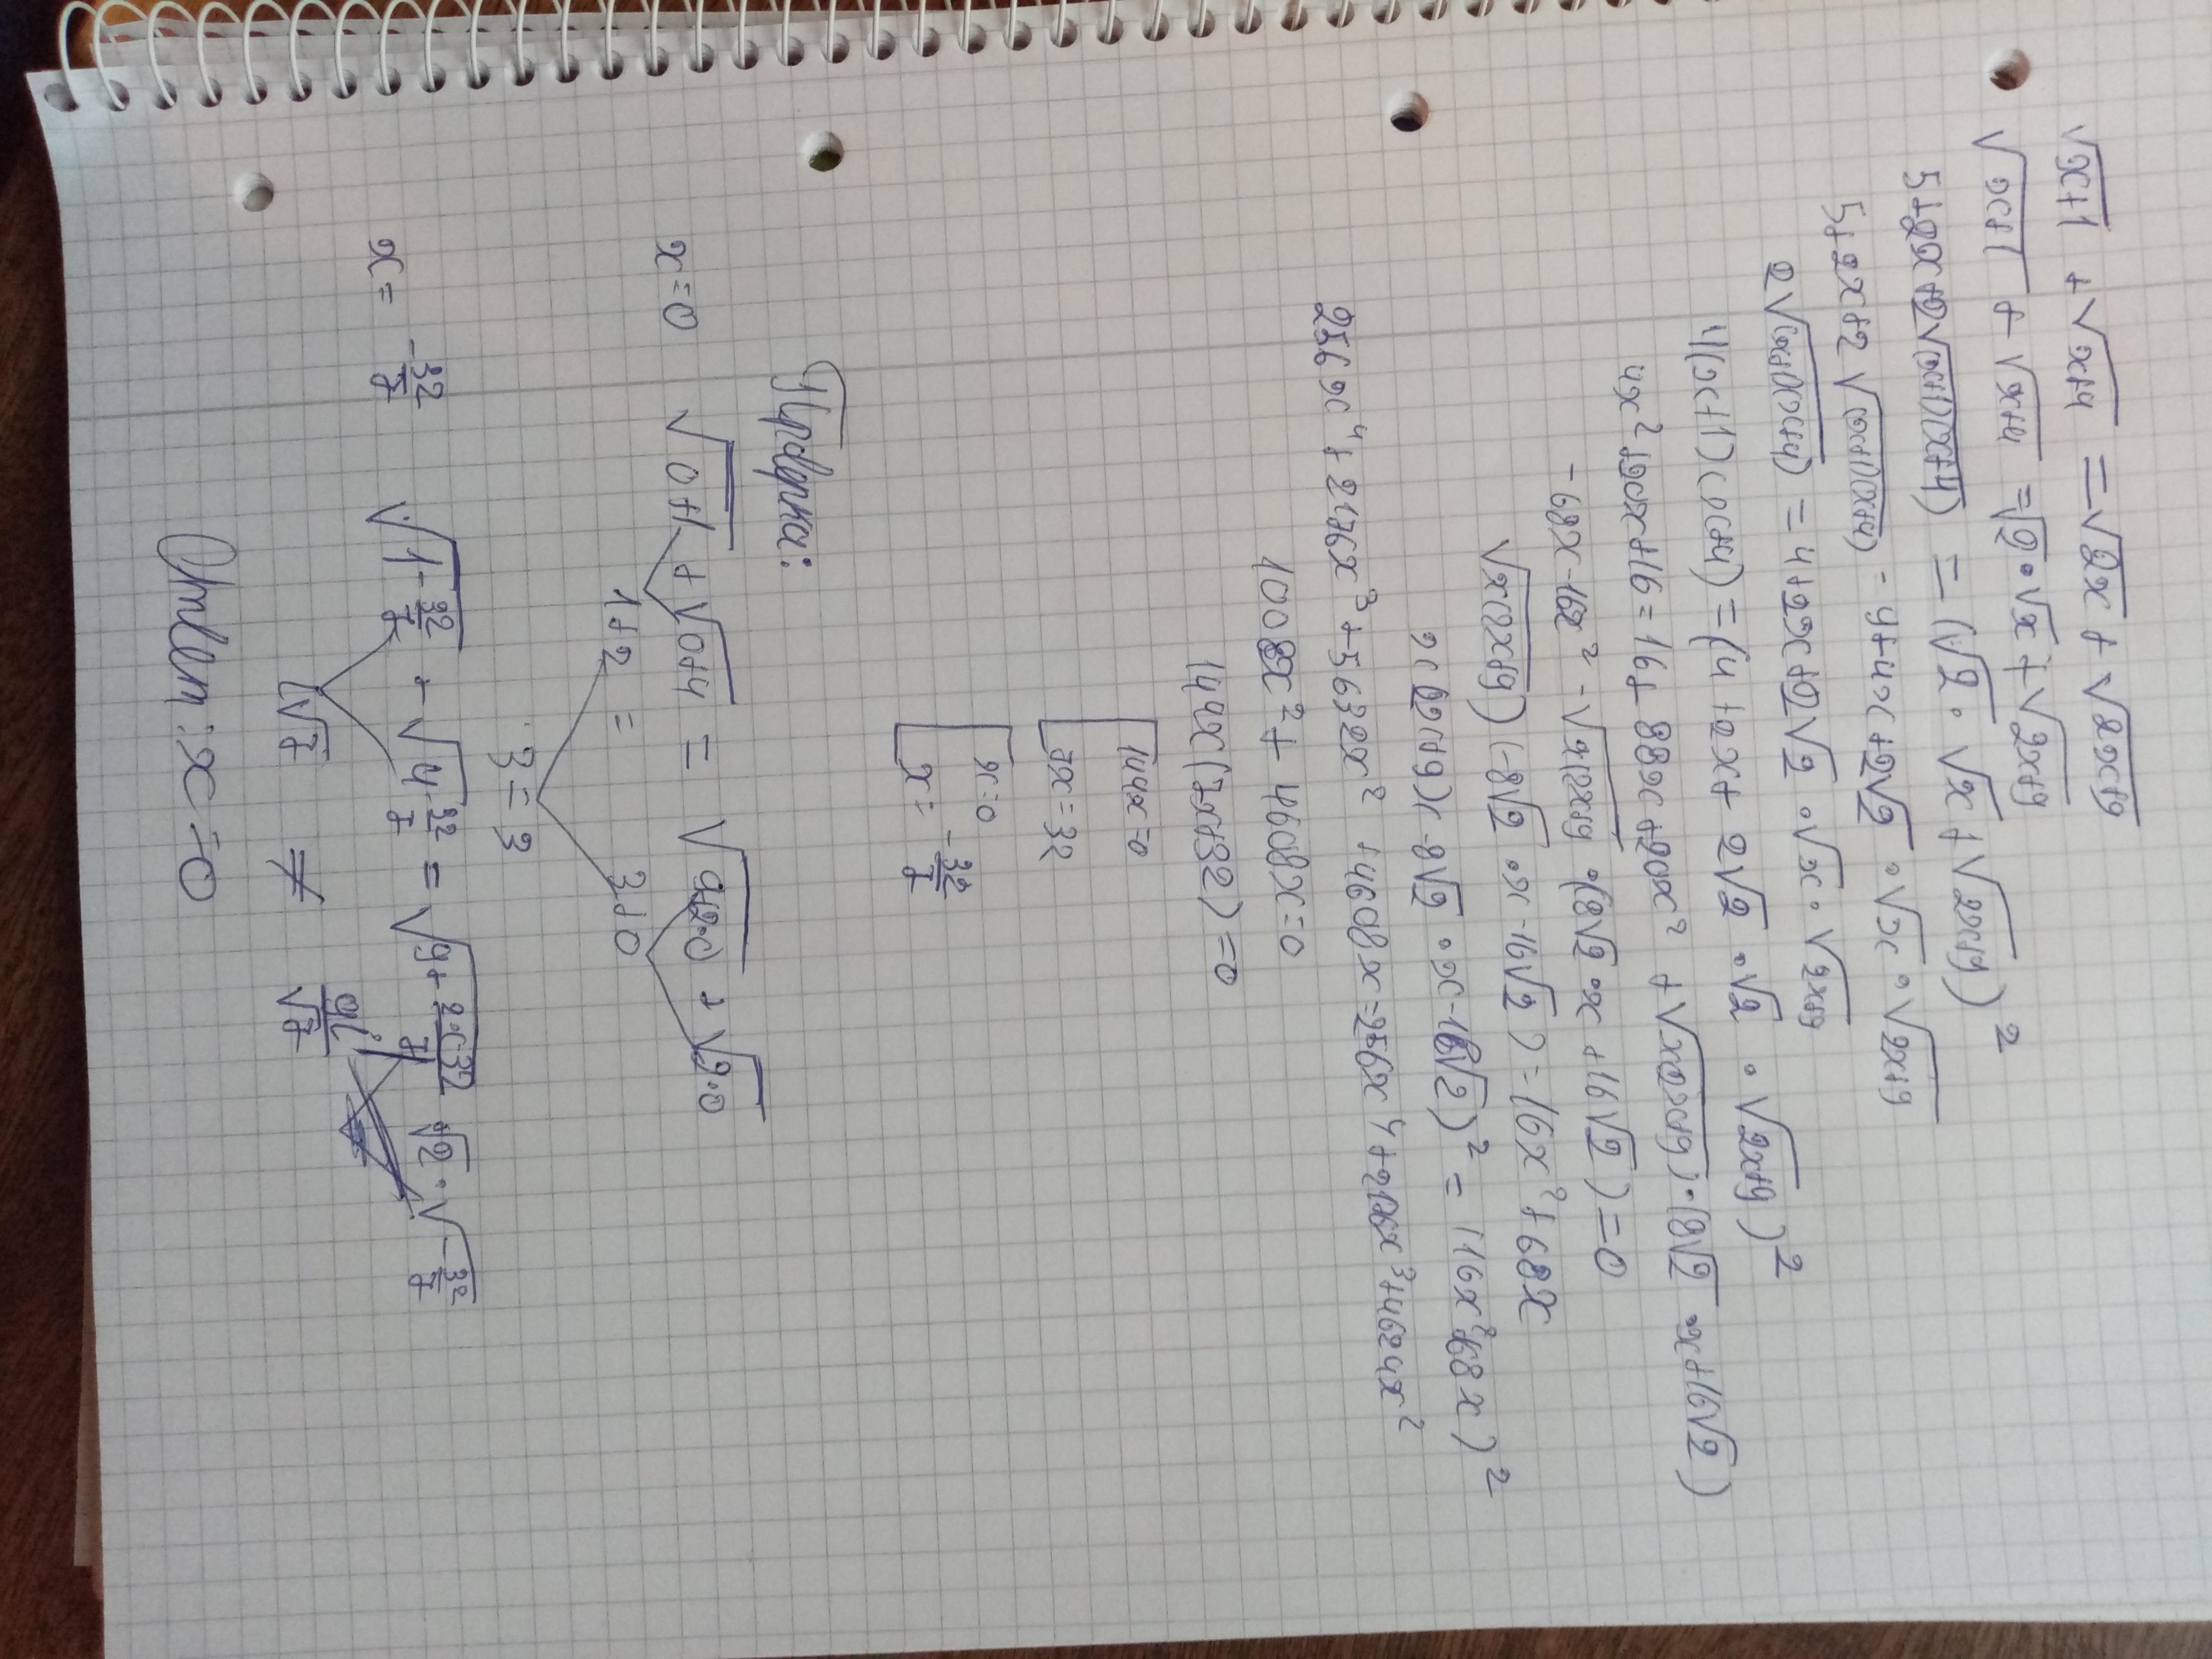 √(x+1) + √(x+4) = √(2x) + √(2x+9)
√(x+1) + √(x+4) = √2·√x + √(2x+9)
5+2x+2√((x+1)(x+4)) = (√2·√x+√(2x+9))²
5+2x+2√((x+1)(x+4)) = 9+4x+2√2·√x·√(2x+9)
2√((x+1)(x+4)) = 4+2x+2√2·√x·√(2x+9)
4(x+1)(x+4) = (4+2x+2√2·√x·√(2x+9))²
4x²+20x+16 = 16+88x+20x²+√(x(2x+9))·(8√2·x+16√2)
-68x-16x²-√(x(2x+9))·(8√2·x+16√2)=0
√(x(2x+9))(-8√2·x-16√2)=16x²+68x
x(2x+9)(-8√2·x-16√2)²=(16x²+68x)²
256x⁴+2176x³+5632x²+4608x=256x⁴+2176x³+4624x²
1008x²+4608x=0
144x(7x+32)=0
[144x=0
7x=32
[x=0
x=-32/7
Проверка:
x=0 √(0+1) + √(0+4) = √(9+2·0) + √(2·0)
1+2 = 3+0
3=3
x=-32/7 √(1-32/7) + √(4-32/7) = √(9+2·(-32)/7) + √2·√(-32/7)
≠ 9i/√7
Ответ: x=0